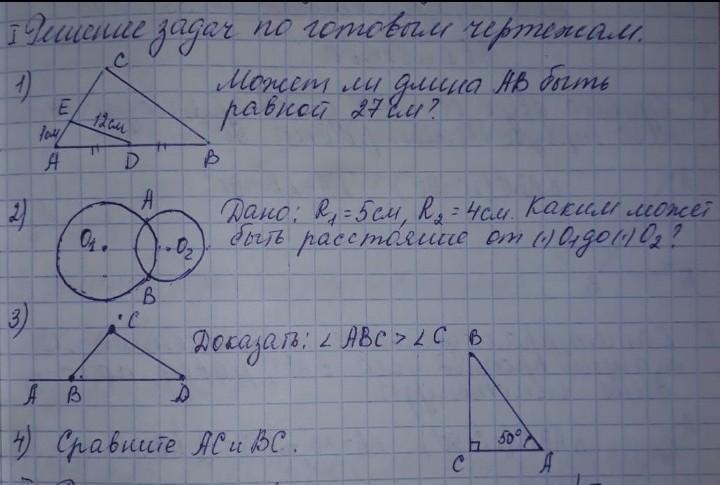 I Решение задач по готовым чертежам.
1) Может ли длина AB быть
равной 27 см?
C
E
1см
12см
A D B
2) Дано: R₁=5см, R₂=4см. Каким может
быть расстояние от (·)O₁ до (·)O₂?
A
O₁ O₂
B
3) Доказать: ∠ ABC > ∠ C
C
A B D
4) Сравните AC и BC.
B
50°
C A